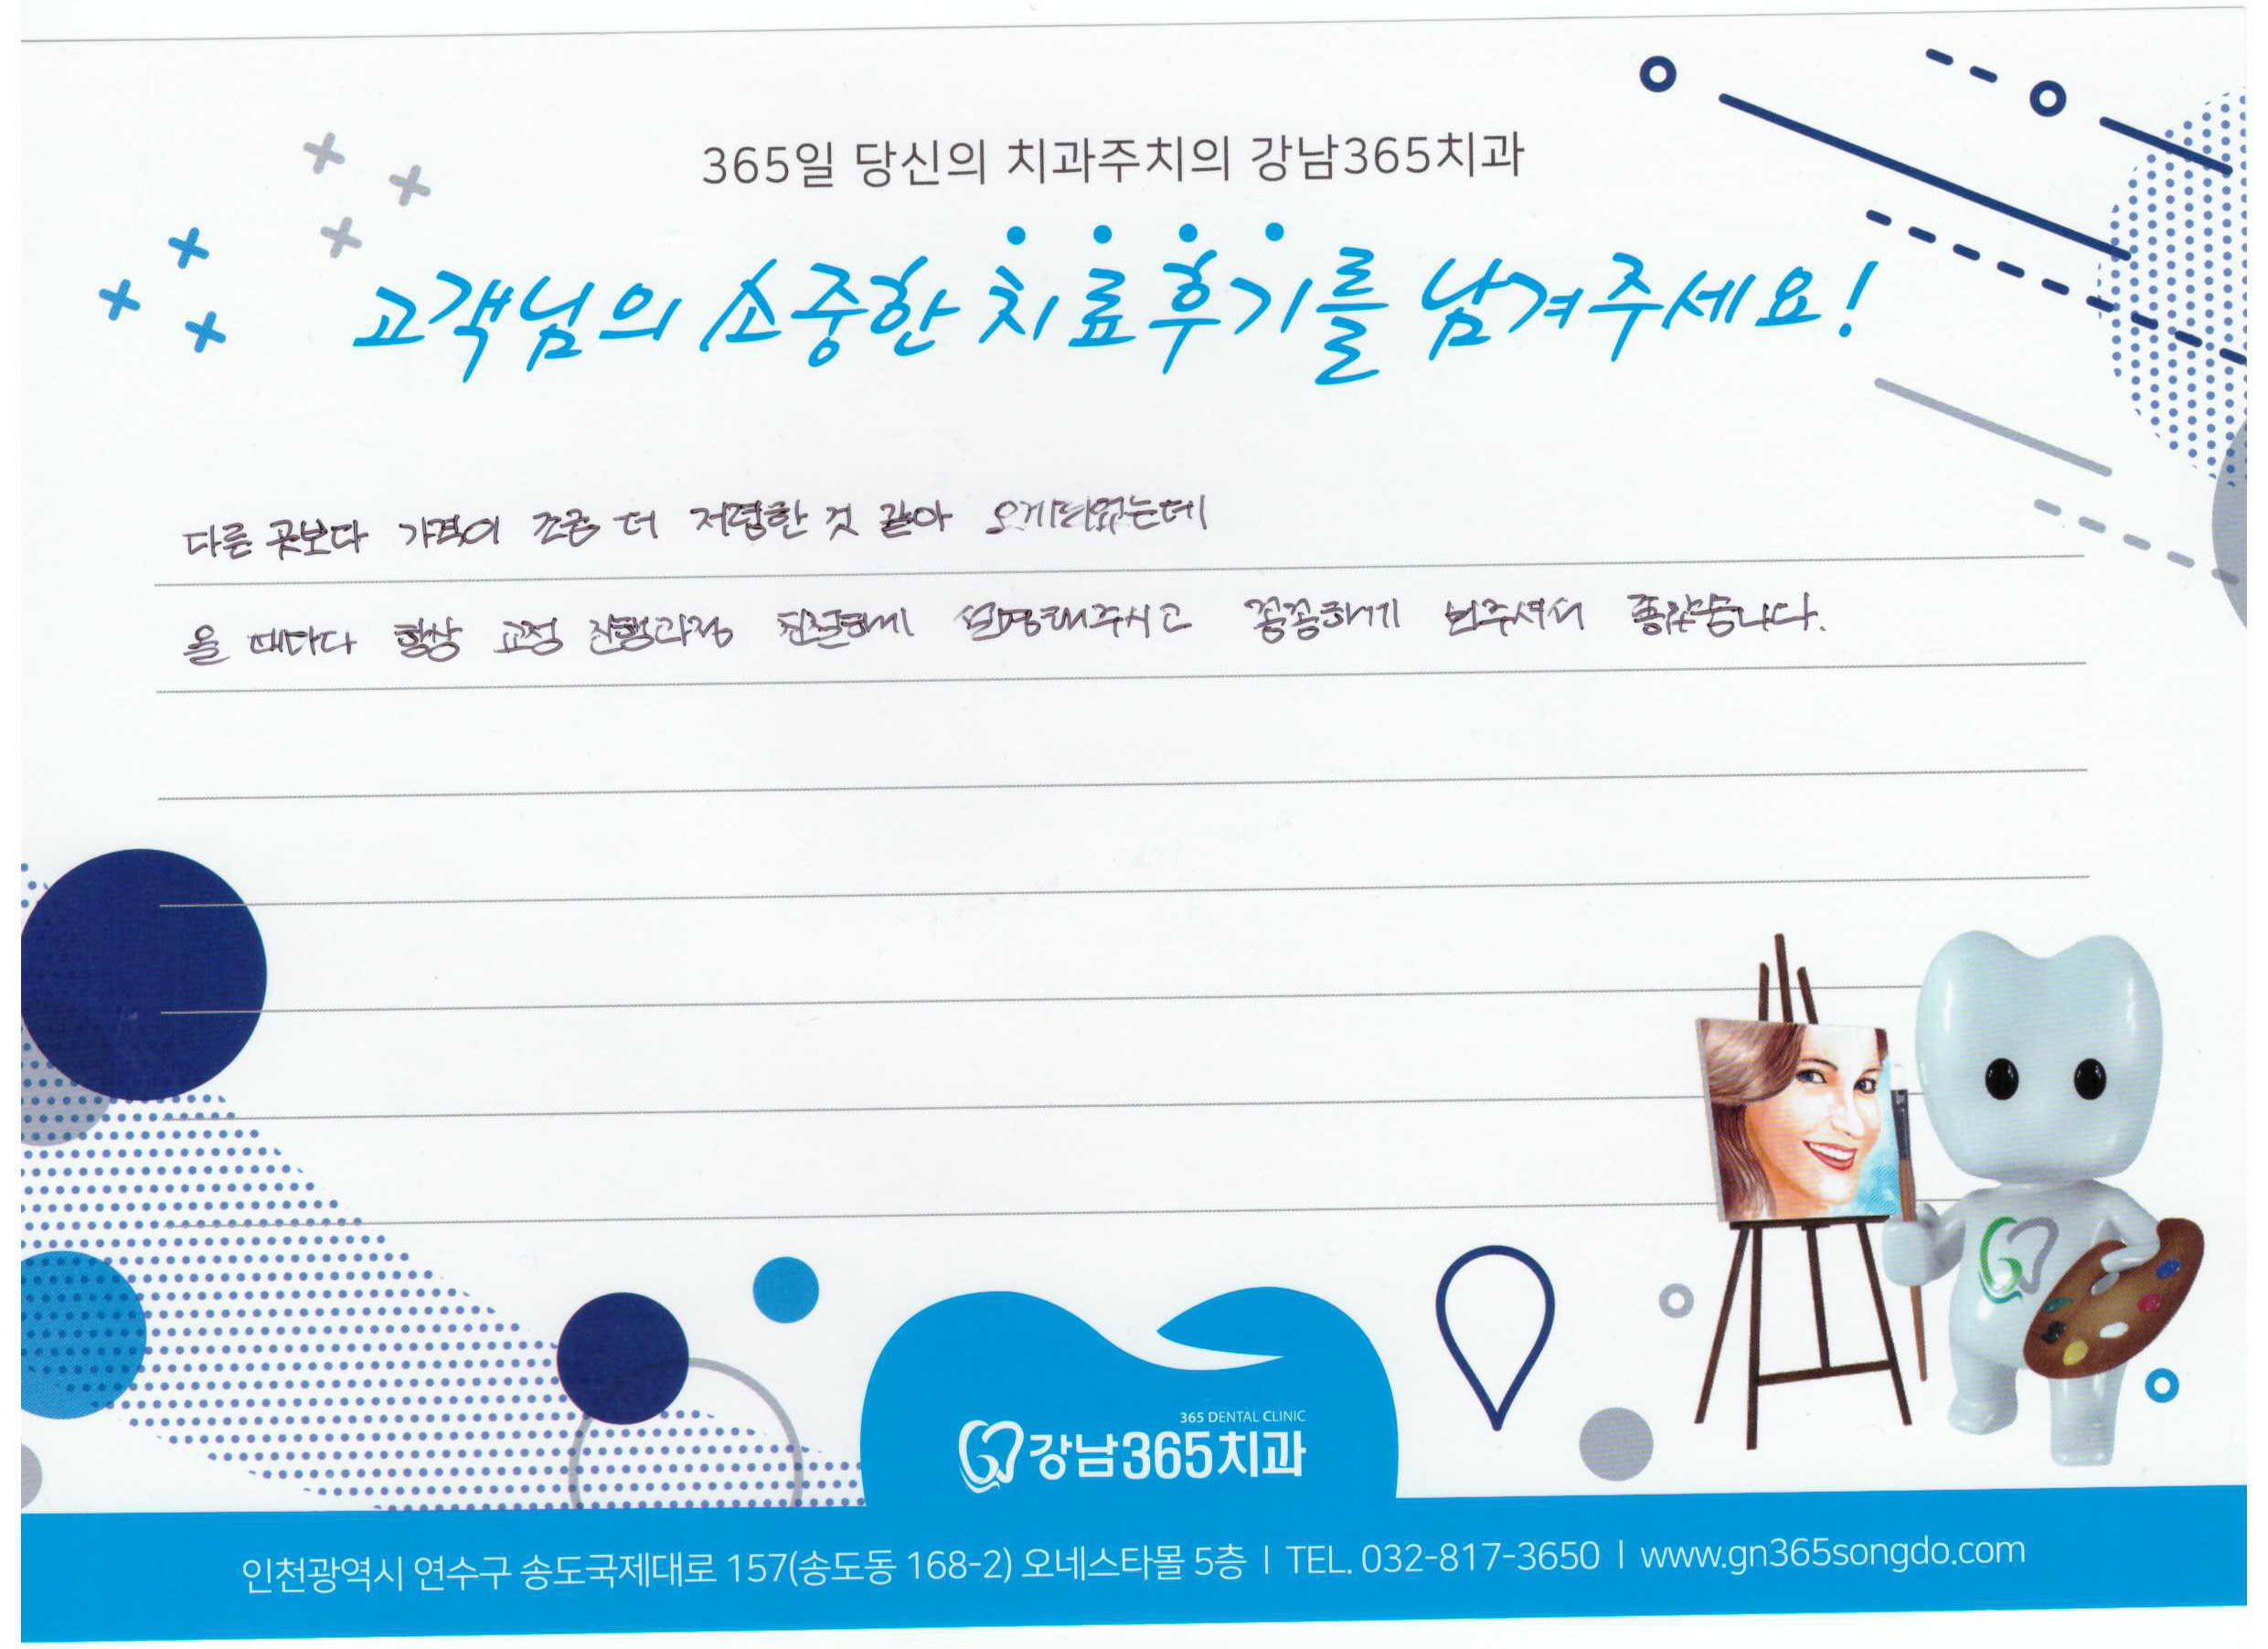 365일 당신의 치과주치의 강남365치과
고객님의 소중한 치료후기를 남겨주세요!
다른 곳보다 가격이 조금 더 저렴한 것 같아 오게되었는데
올 때마다 항상 교정 진행과정 친절하게 설명해주시고 꼼꼼하게 봐주셔서 좋았습니다.
365 DENTAL CLINIC
강남365치과
인천광역시 연수구 송도국제대로 157(송도동 168-2) 오네스타몰 5층 | TEL. 032-817-3650 | www.gn365songdo.com